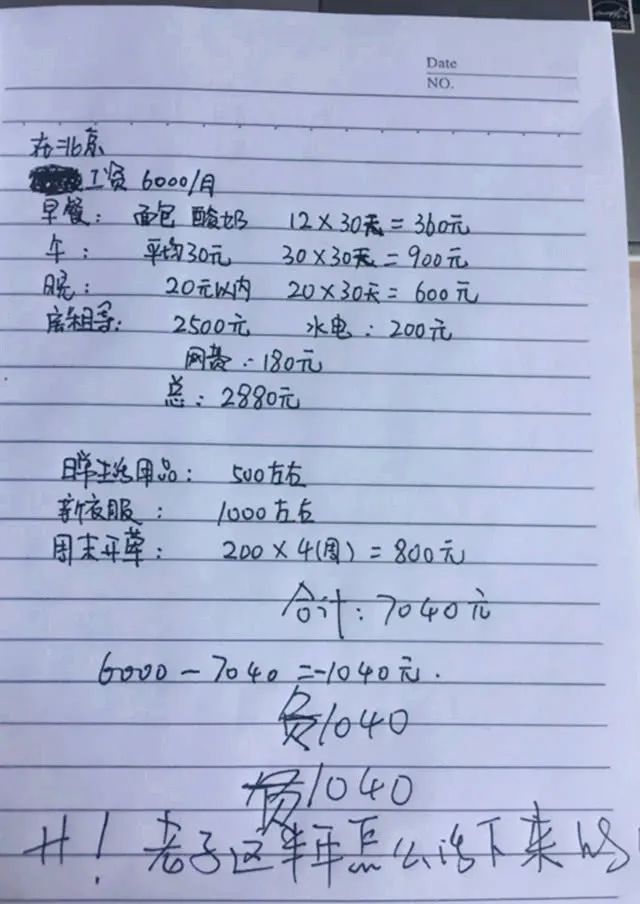 Date
NO.
在北京
工资 6000/月
早餐: 面包 酸奶 12×30天=360元
午: 平均30元 30×30天=900元
晚: 20元以内 20×30天=600元
房租等: 2500元 水电:200元
网费:180元
总:2880元
日常生活用品: 500左右
新衣服: 1000左右
周末开荤: 200×4(周)=800元
合计:7040元
6000-7040=-1040元.
负1040
负1040
艹!老子这半年怎么活下来的